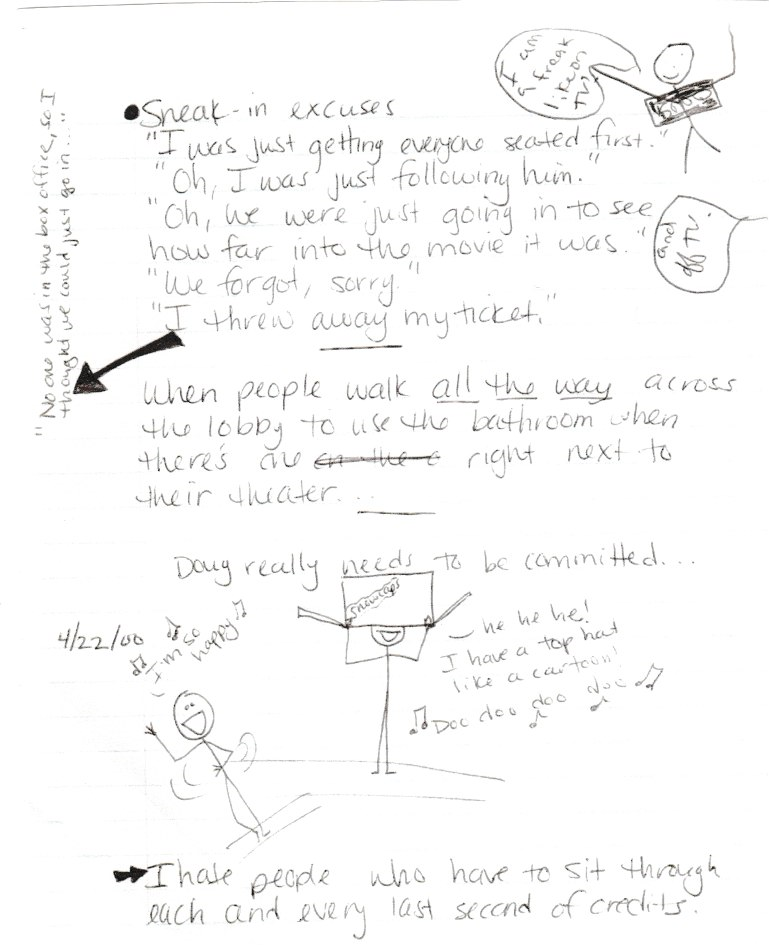 I am
a freak
like on
TV.
• Sneak-in excuses
"I was just getting everyone seated first."
"Oh, I was just following him."
"Oh, we were just going in to see
how far into the movie it was."
and
off TV.
"We forgot, sorry."
"I threw away my ticket."
"No one was in the box office, so I
thought we could just go in..."
When people walk all the way across
the lobby to use the bathroom when
there's one right next to
their theater...
Doug really needs to be committed...
snowcaps
4/22/00
I'm so
happy
he he he!
I have a top hat
like a cartoon!
Doo doo doo doo
I hate people who have to sit through
each and every last second of credits.